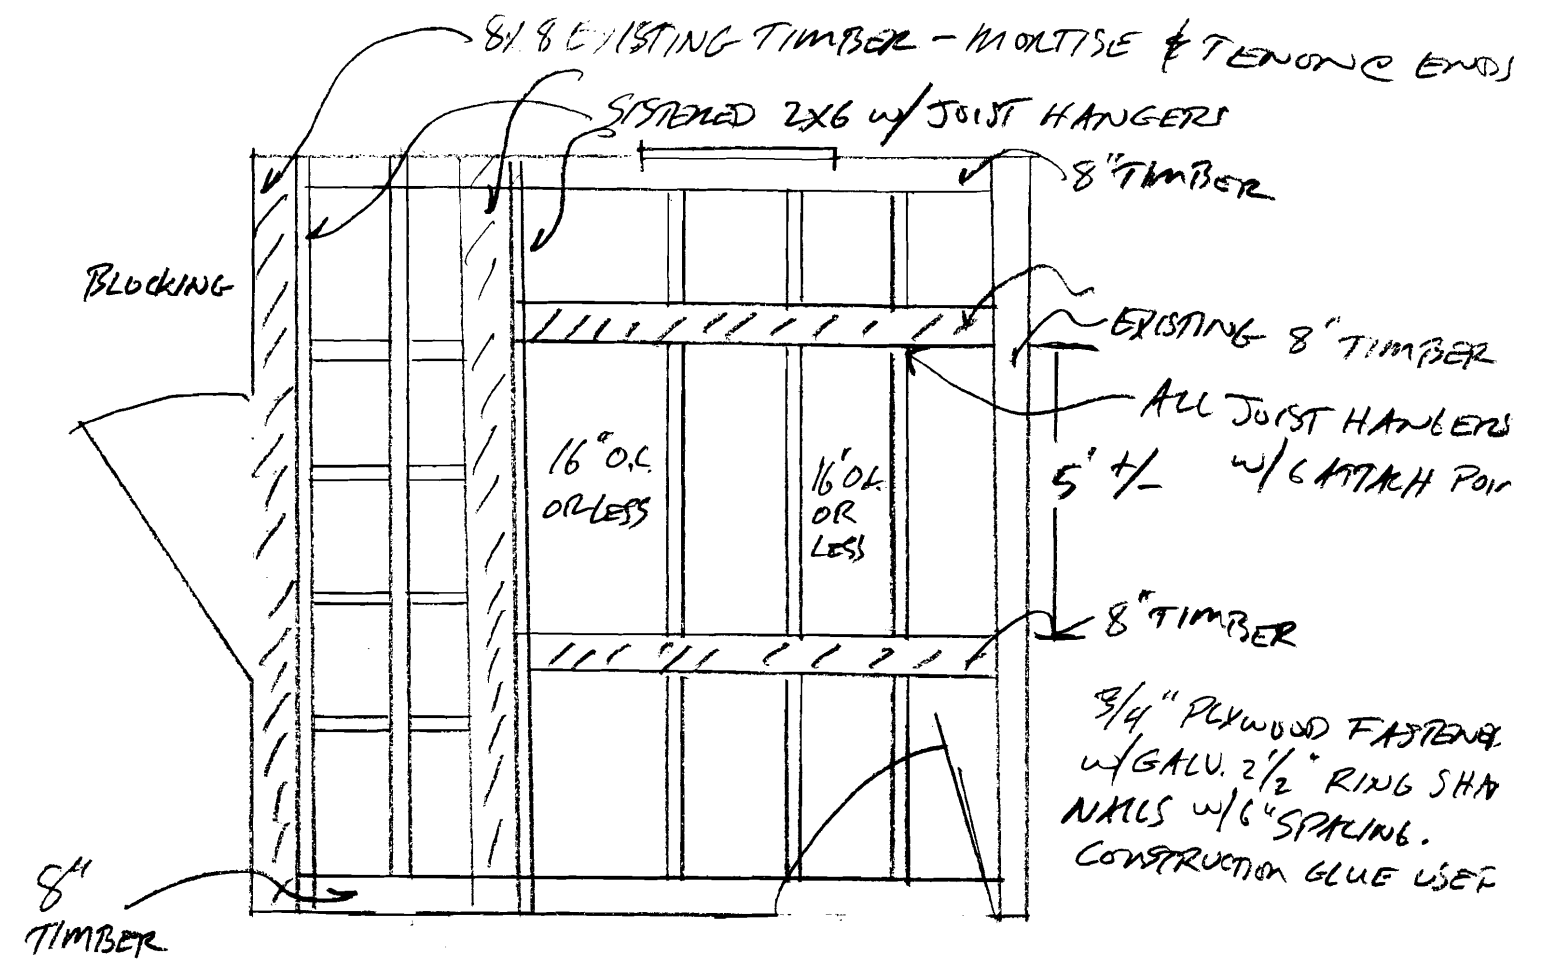 8X8 EXISTING TIMBER - MORTISE & TENON @ ENDS
SISTERED 2X6 w/ JOIST HANGERS
8" TIMBER
BLOCKING
EXISTING 8" TIMBER
ALL JOIST HANGERS
w/ 6 ATTACH POIN
16" O.C.
OR LESS
16" O.C.
OR
LESS
5' +/-
8" TIMBER
3/4" PLYWOOD FASTENED
w/ GALV. 2 1/2" RING SHA
NAILS w/ 6" SPACING.
CONSTRUCTION GLUE USED
8"
TIMBER